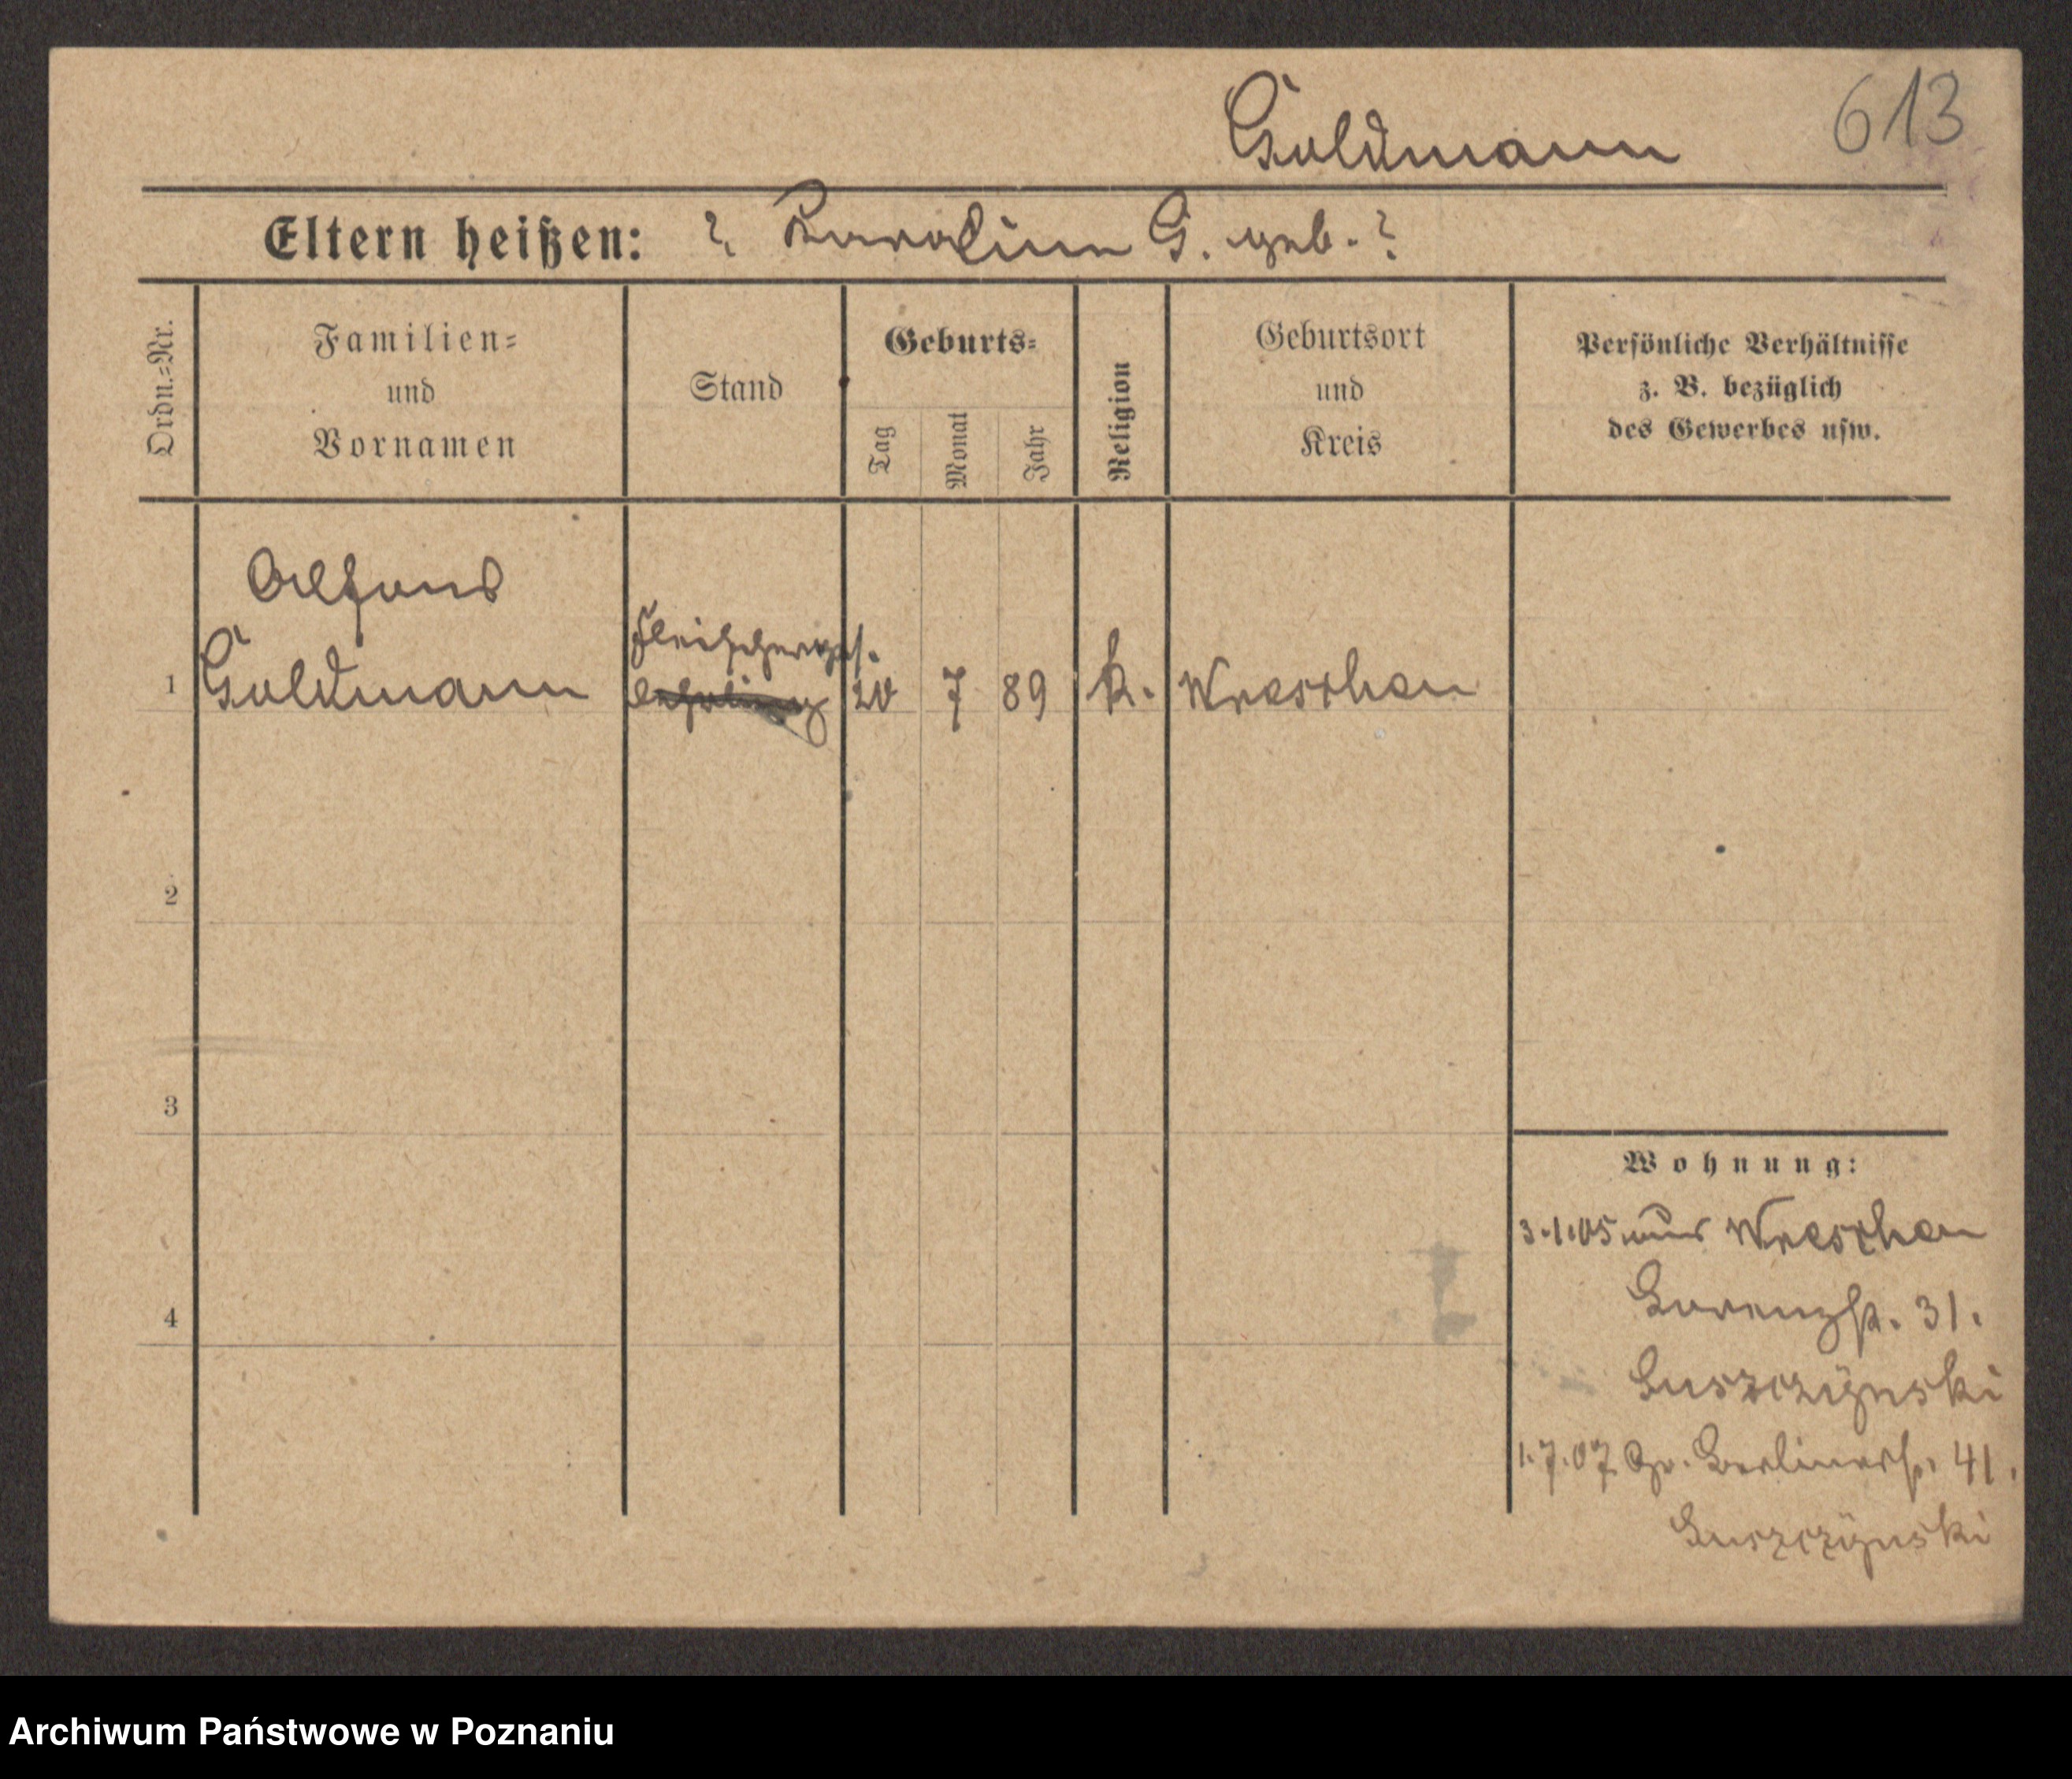 Goldmann 613
Eltern heißen: ? Karoline G. geb. ?
Ordn.-Nr.
Familien-
und
Vornamen
Stand
Geburts-
Tag
Monat
Jahr
Religion
Geburtsort
und
Kreis
Persönliche Verhältnisse
z. B. bezüglich
des Gewerbes usw.
Alfons
Fleischerges.
1 Goldmann Lehrling 20 7 89 k. Wreschen
2
3
Wohnung:
3.1.05 aus Wreschen
4
Lorenzstr. 31.
Luszczÿnski
1.7.07 Gr. Berlinerstr. 41.
Luszczÿnski
Archiwum Państwowe w Poznaniu